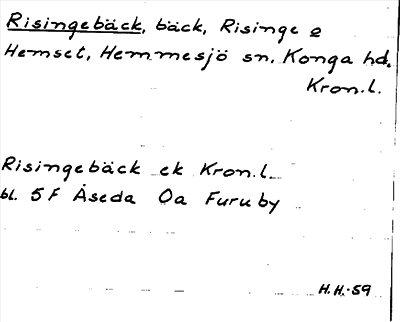 Risingebäck, bäck, Risinge o
Hemset, Hemmesjö sn. Konga hd.
Kron.l.
Risingebäck ek Kron.l.
bl. 5F Åseda Oa Furuby
H.H.-59